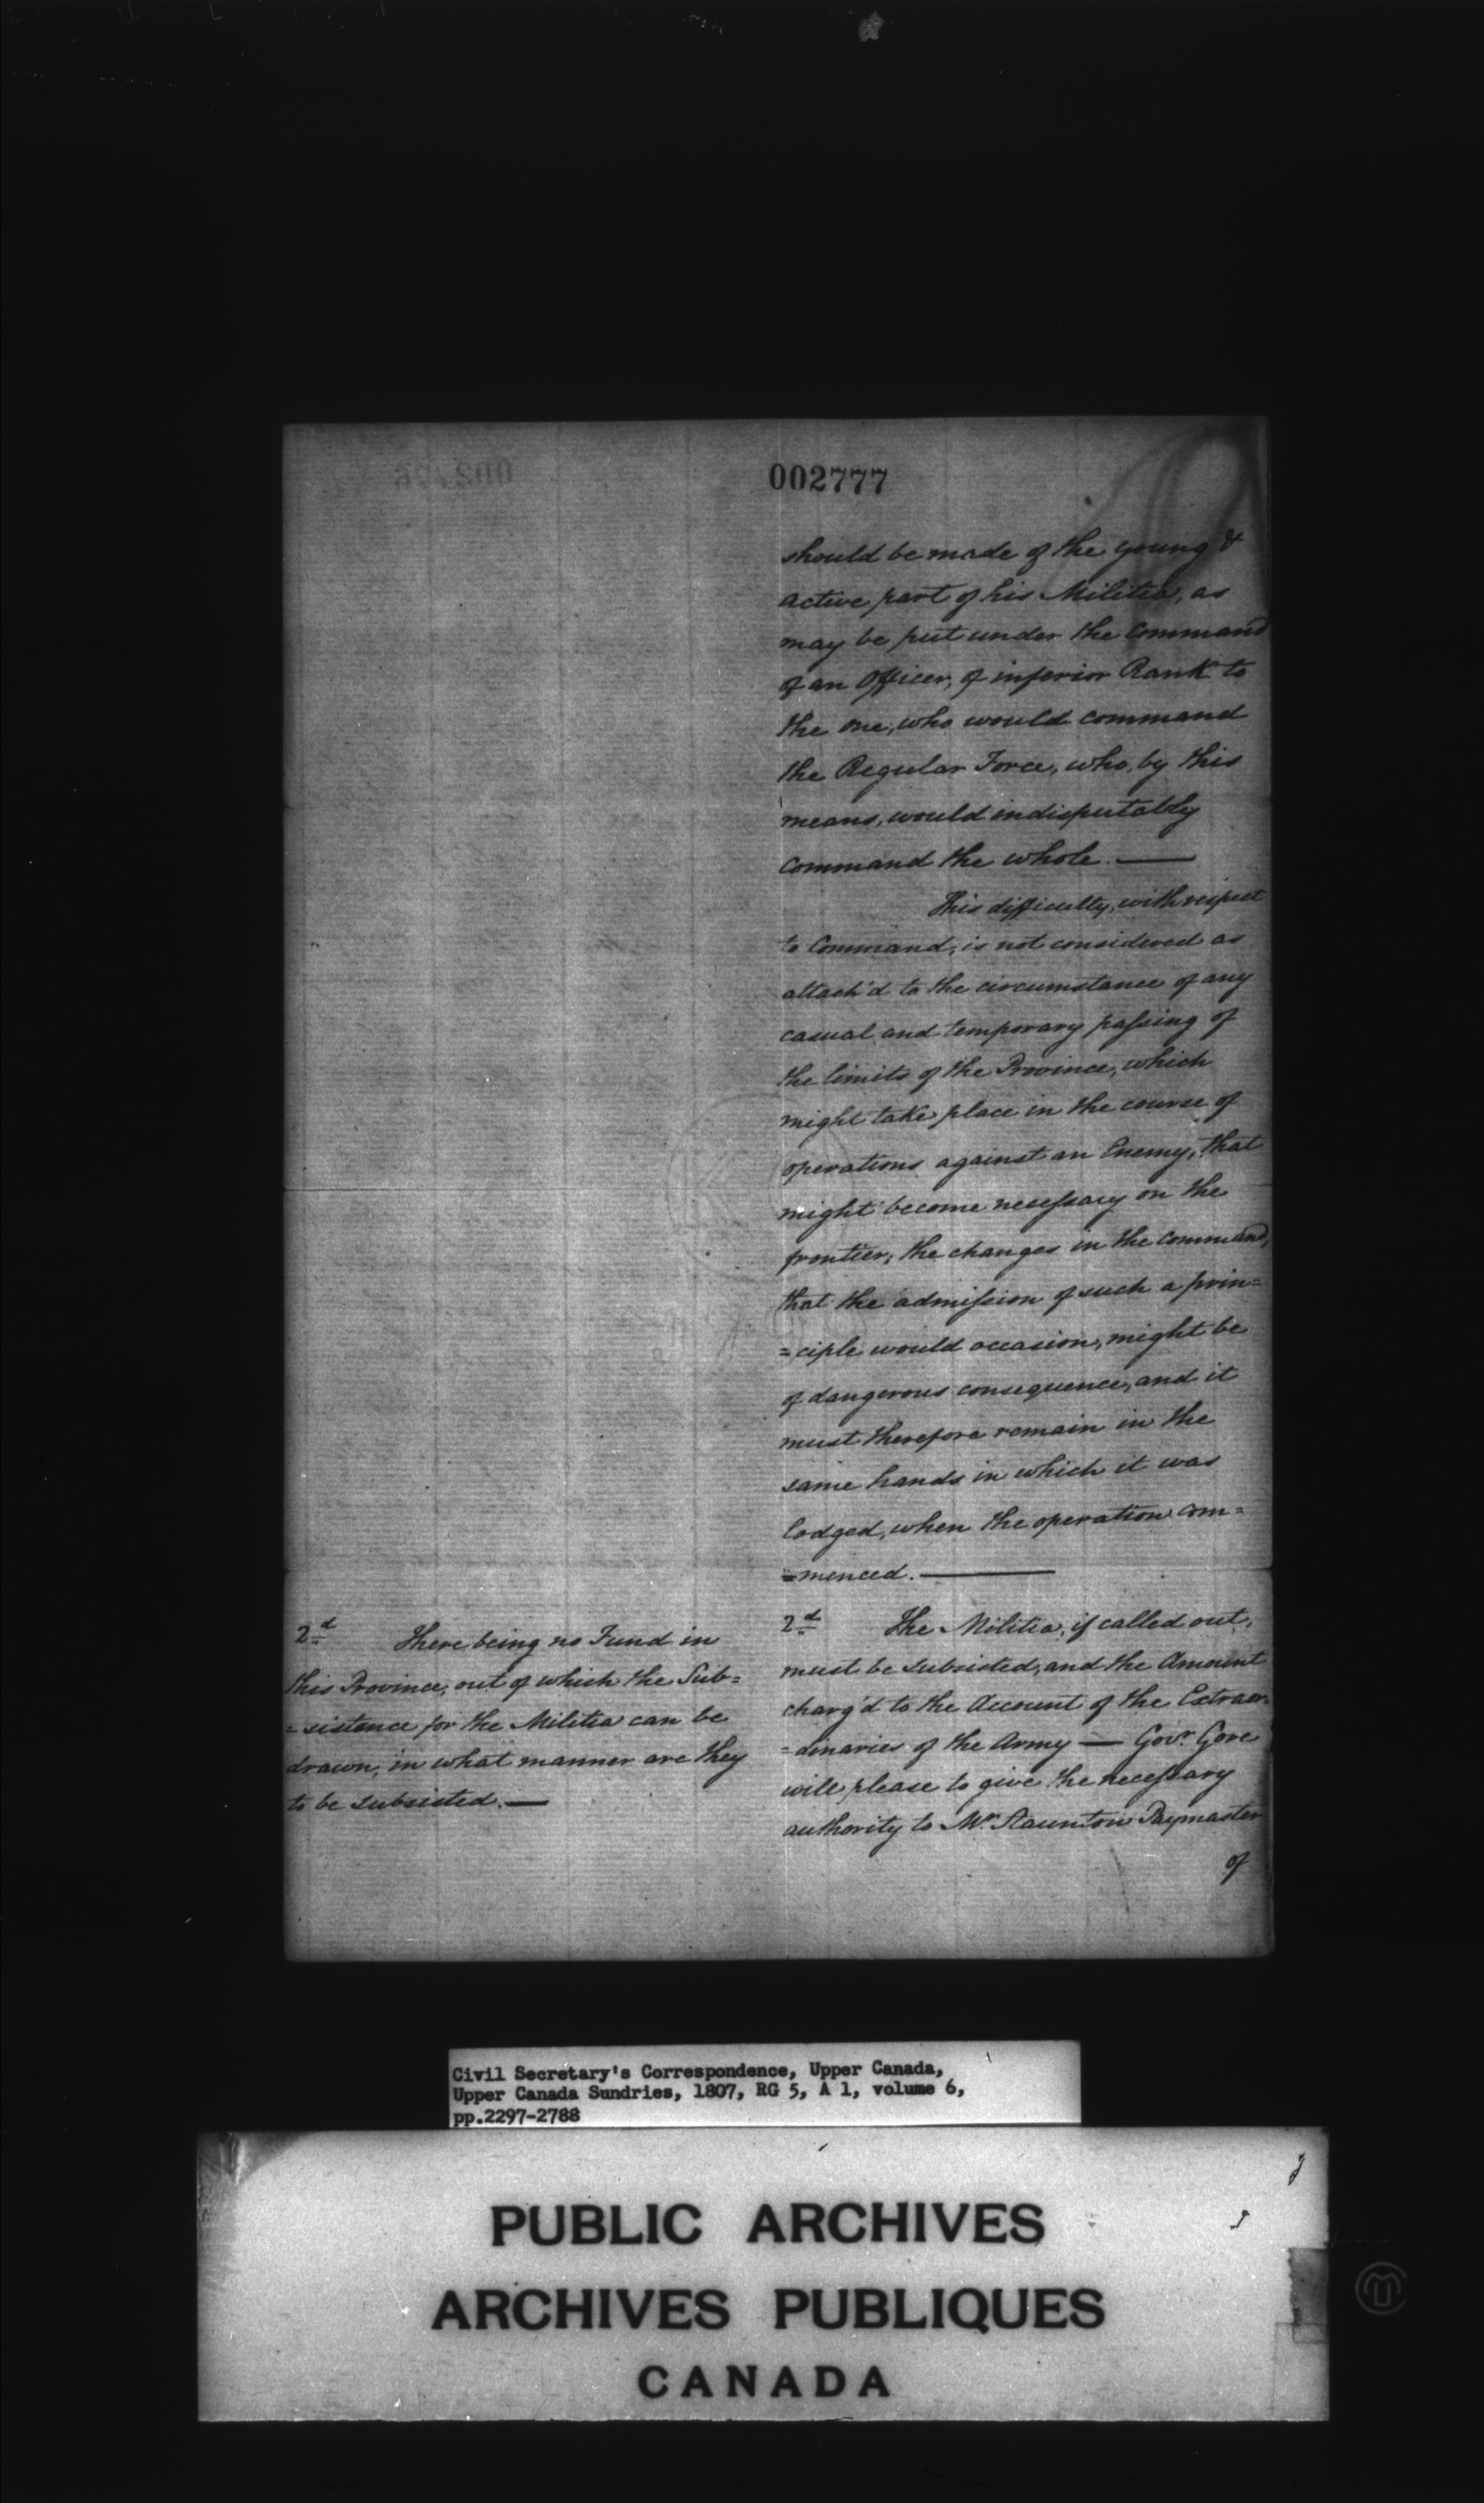 002777
should be made of the young &
active part of his Militia, as
may be put under the Command
of an Officer, of inferior Rank to
the one, who would command
the Regular Force, who, by this
means, would indisputably
command the whole. —
This difficulty, with respect
to Command, is not considered as
attach'd to the circumstance of any
casual and temporary passing of
the limits of the Province, which
might take place in the course of
operations against an Enemy, that
might become necessary on the
frontier; the changes in the command,
that the admission of such a prin=
=ciple would occasion, might be
of dangerous consequence, and it
must therefore remain in the
same hands in which it was
lodged, when the operation com=
=menced. —
2d There being no Fund in
this Province, out of which the Sub=
=sistence for the Militia can be
drawn, in what manner are they
to be subsisted. —
2d The Militia, if called out,
must be subsisted, and the Amount
charg'd to the Account of the Extraor=
=dinaries of the Army — Govr Gore
will please to give the necessary
authority to Mr Staunton Paymaster
of
Civil Secretary's Correspondence, Upper Canada,
Upper Canada Sundries, 1807, RG 5, A 1, volume 6,
pp.2297-2788
PUBLIC ARCHIVES
ARCHIVES PUBLIQUES
CANADA